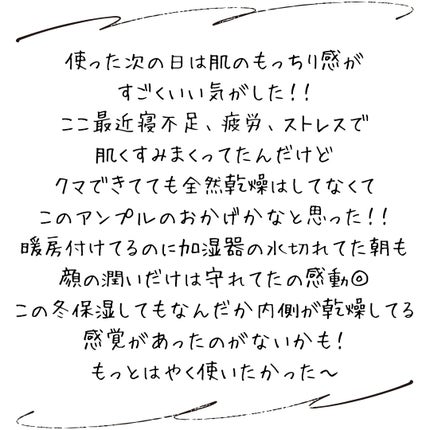 使った次の日は肌のもっちり感が
すごくいい気がした！！
ここ最近寝不足、疲労、ストレスで
肌くすみまくってたんだけど
クマできてても全然乾燥はしてなくて
このアンプルのおかげかなと思った！！
暖房付けてるのに加湿器の水切れてた朝も
顔の潤いだけは守れてたの感動◎
この冬保湿してもなんだか内側が乾燥してる
感覚があったのがないかも！
もっとはやく使いたかった〜